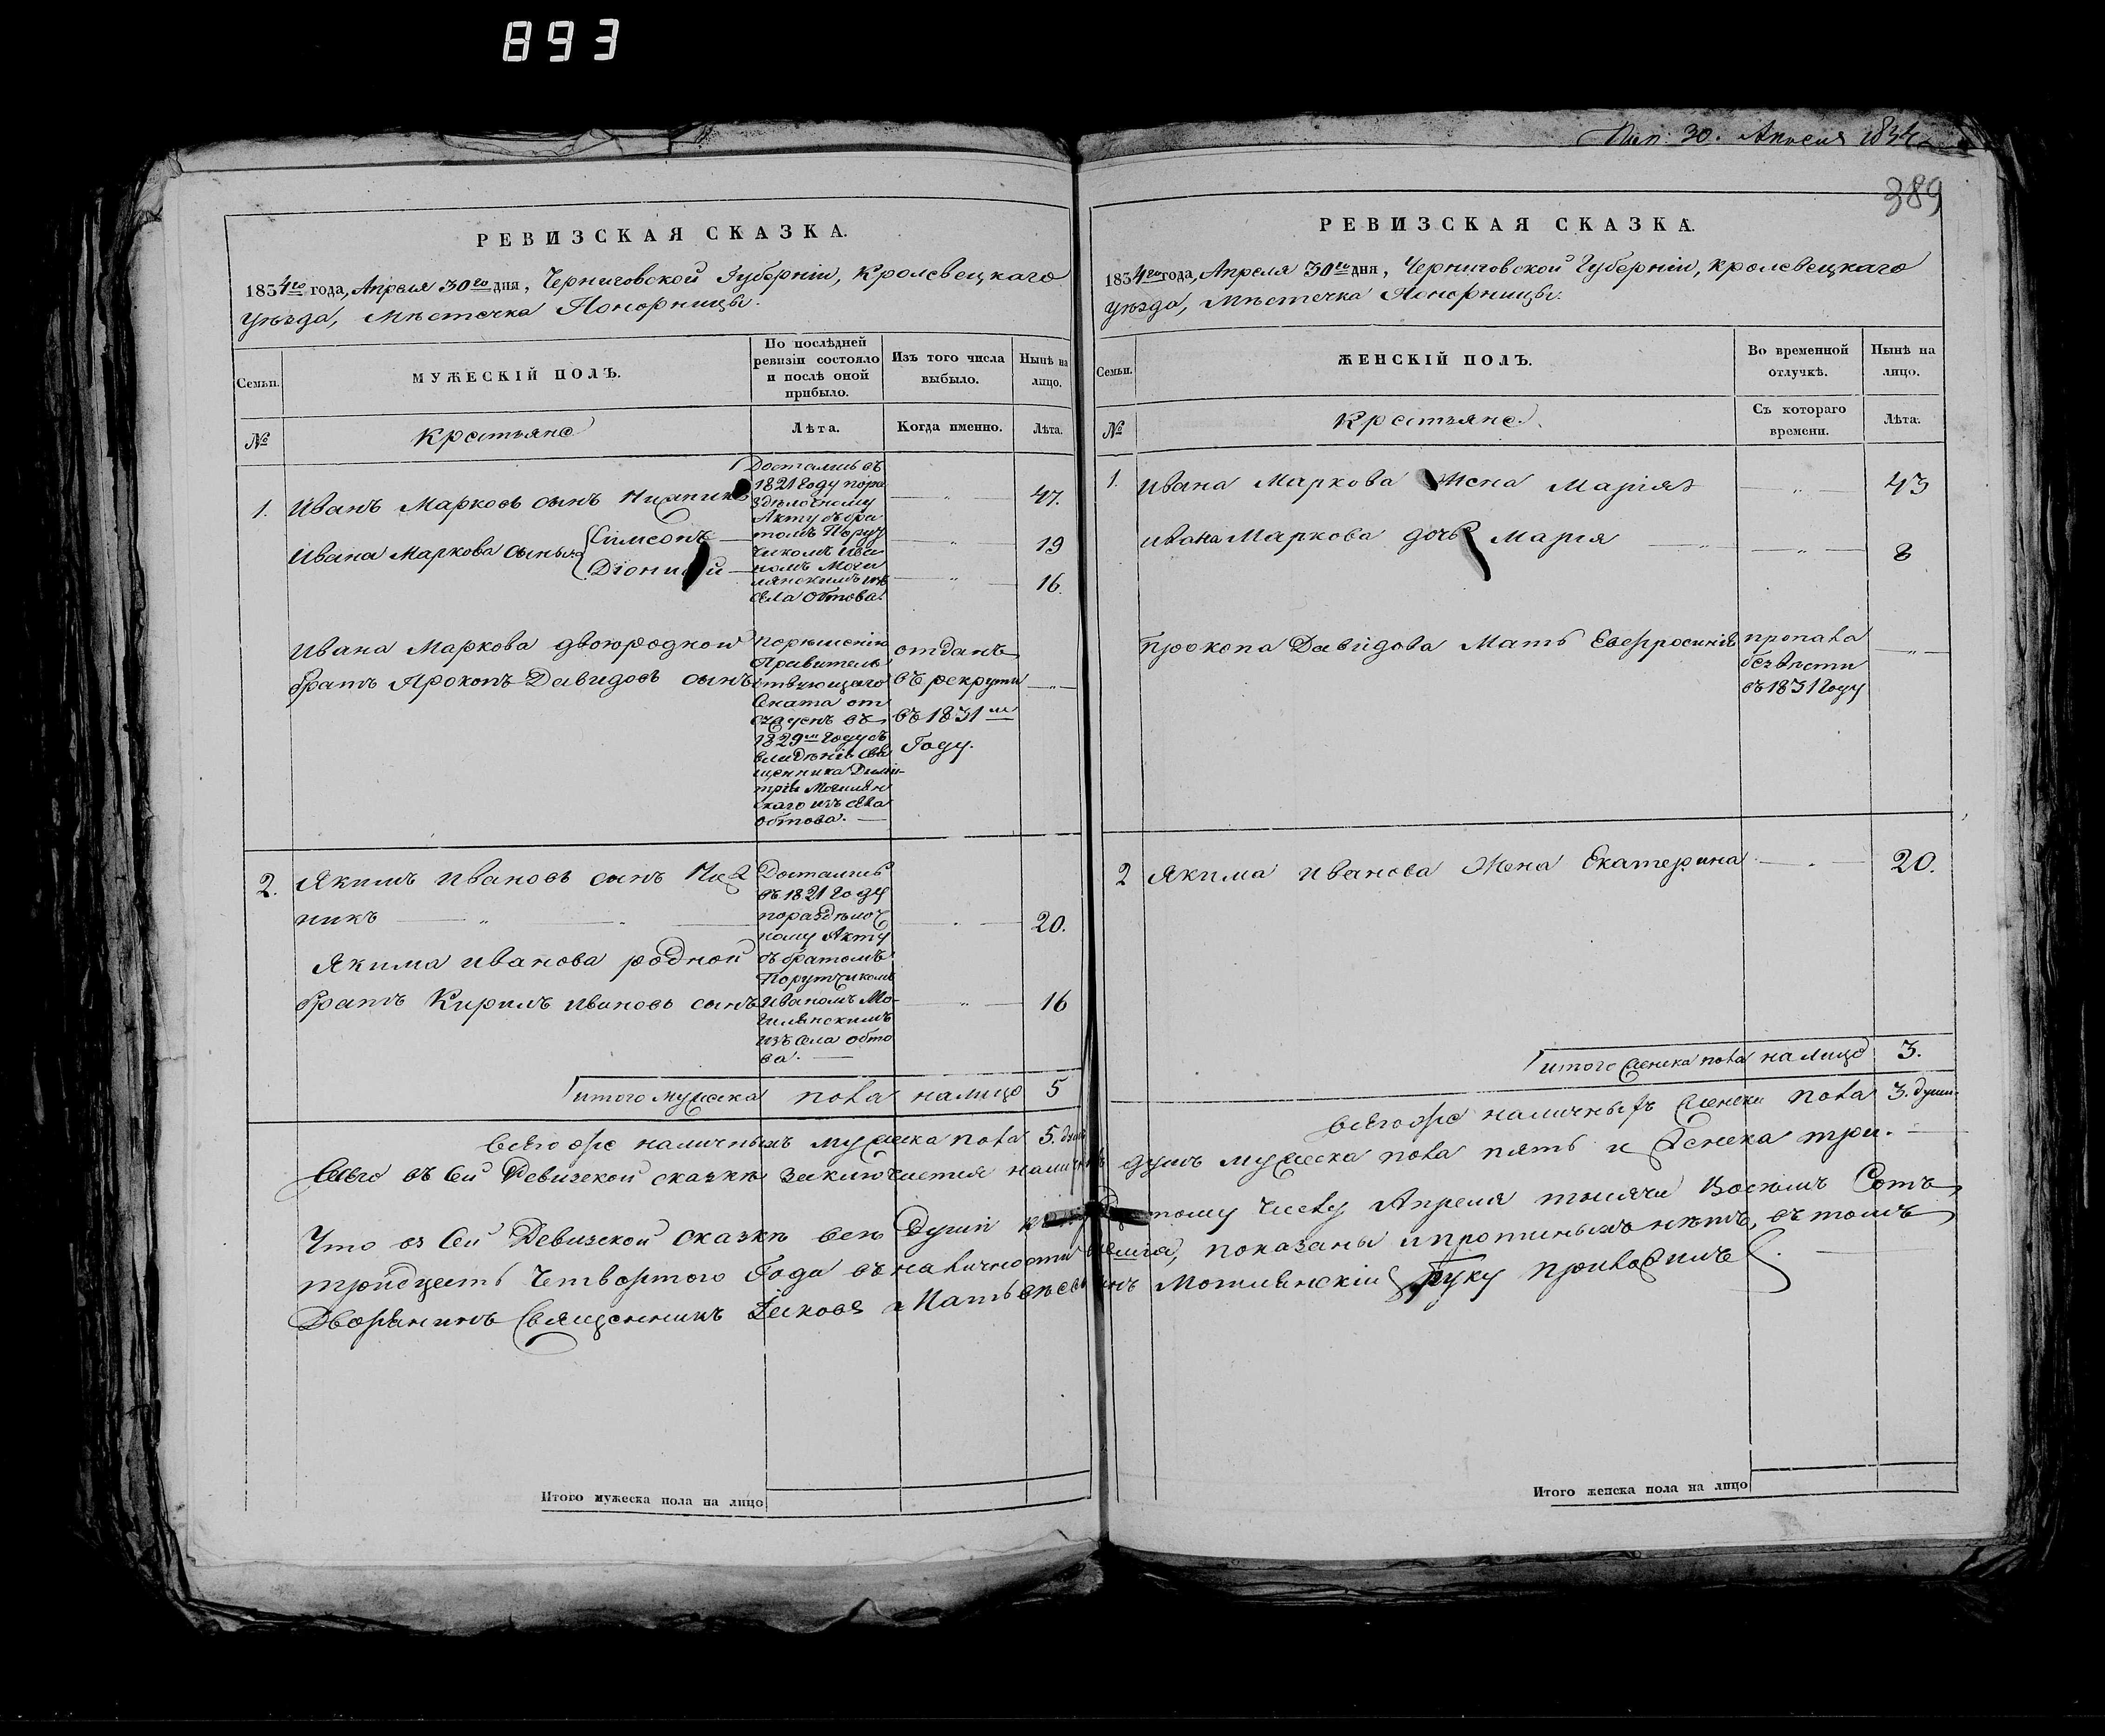 893
30. Апреля 1834
389
РЕВИЗСКАЯ СКАЗКА.
1834го года, Апреля 30го дня, Черниговской Губерніи, Кролевецкаго
уѣзда, Мѣстечка Понорницы.
Семьи.
МУЖЕСКІЙ ПОЛЪ.
По послѣдней ревизіи состояло и послѣ оной прибыло.
Изъ того числа выбыло.
Нынѣ на лицо.
№
Крестьяне
Лѣта.
Когда именно.
Лѣта.
1. Иванъ Марковъ сынъ
47.
Ивана Маркова сыны
Симеонъ
19
Діонисій
16.
Достались въ
1821 году пора
здѣлочному
Акту съ бра
томъ Поруч
чикомъ Ива
номъ Моги
лянскимъ изъ
села Обтова.
Ивана Маркова двоюродной
братъ Прокопъ Давидовъ сынъ
порѣшенію
Правитель
ствующаго
Сената от
сужденъ въ
1829м году съ
владѣнія Свя
щенника Дими-
трія Могилян
скаго изъ села
обтова.
отданъ
въ рекруты
въ 1831м
Году.
2. Якимъ Ивановъ сынъ
никъ
20.
Якима Иванова родной
братъ Кирилъ Ивановъ сынъ
16
Достались
въ 1821 Году
пораздѣлоч
ному Акту
съ братомъ
Порутчикомъ
Иваномъ Мо-
гилянскимъ
изъ села обто
ва.
итого мужеска пола налицо 5
Всего оже наличныхъ мужеска пола 5. душъ
РЕВИЗСКАЯ СКАЗКА.
1834го года, Апреля 30го дня, Черниговской Губерніи, Кролевецкаго
уѣзда, Мѣстечка Понорницы.
Семьи.
ЖЕНСКІЙ ПОЛЪ.
Во временной отлучкѣ.
Нынѣ на лицо.
№
Крестьяне.
Съ котораго времени.
Лѣта.
1. Ивана Маркова Жена Марія
43
Ивана Маркова дочь Марія
8
Прокопа Давидова Мать Евфросинія
пропала
безвѣсти
въ 1831 Году
2 Якима Иванова Жена Екатерина
20.
итого женска пола налицо 3.
Всего оже наличныхъ женска пола 3. души.
Всего въ Сей Ревизской сказкѣ заключается наличныхъ душъ мужеска пола пять и Женска три.
Что въ Сей Ревизской сказкѣ всѣ Души тому числу Апреля тысяча Восемь Сотъ
тридцать Четвертого Года въ наличности показаны и прописныхъ нѣтъ, въ томъ
Дворянинъ Священникъ Яковъ Могилянскій руку приложилъ.
Итого мужеска пола на лицо
Итого женска пола на лицо